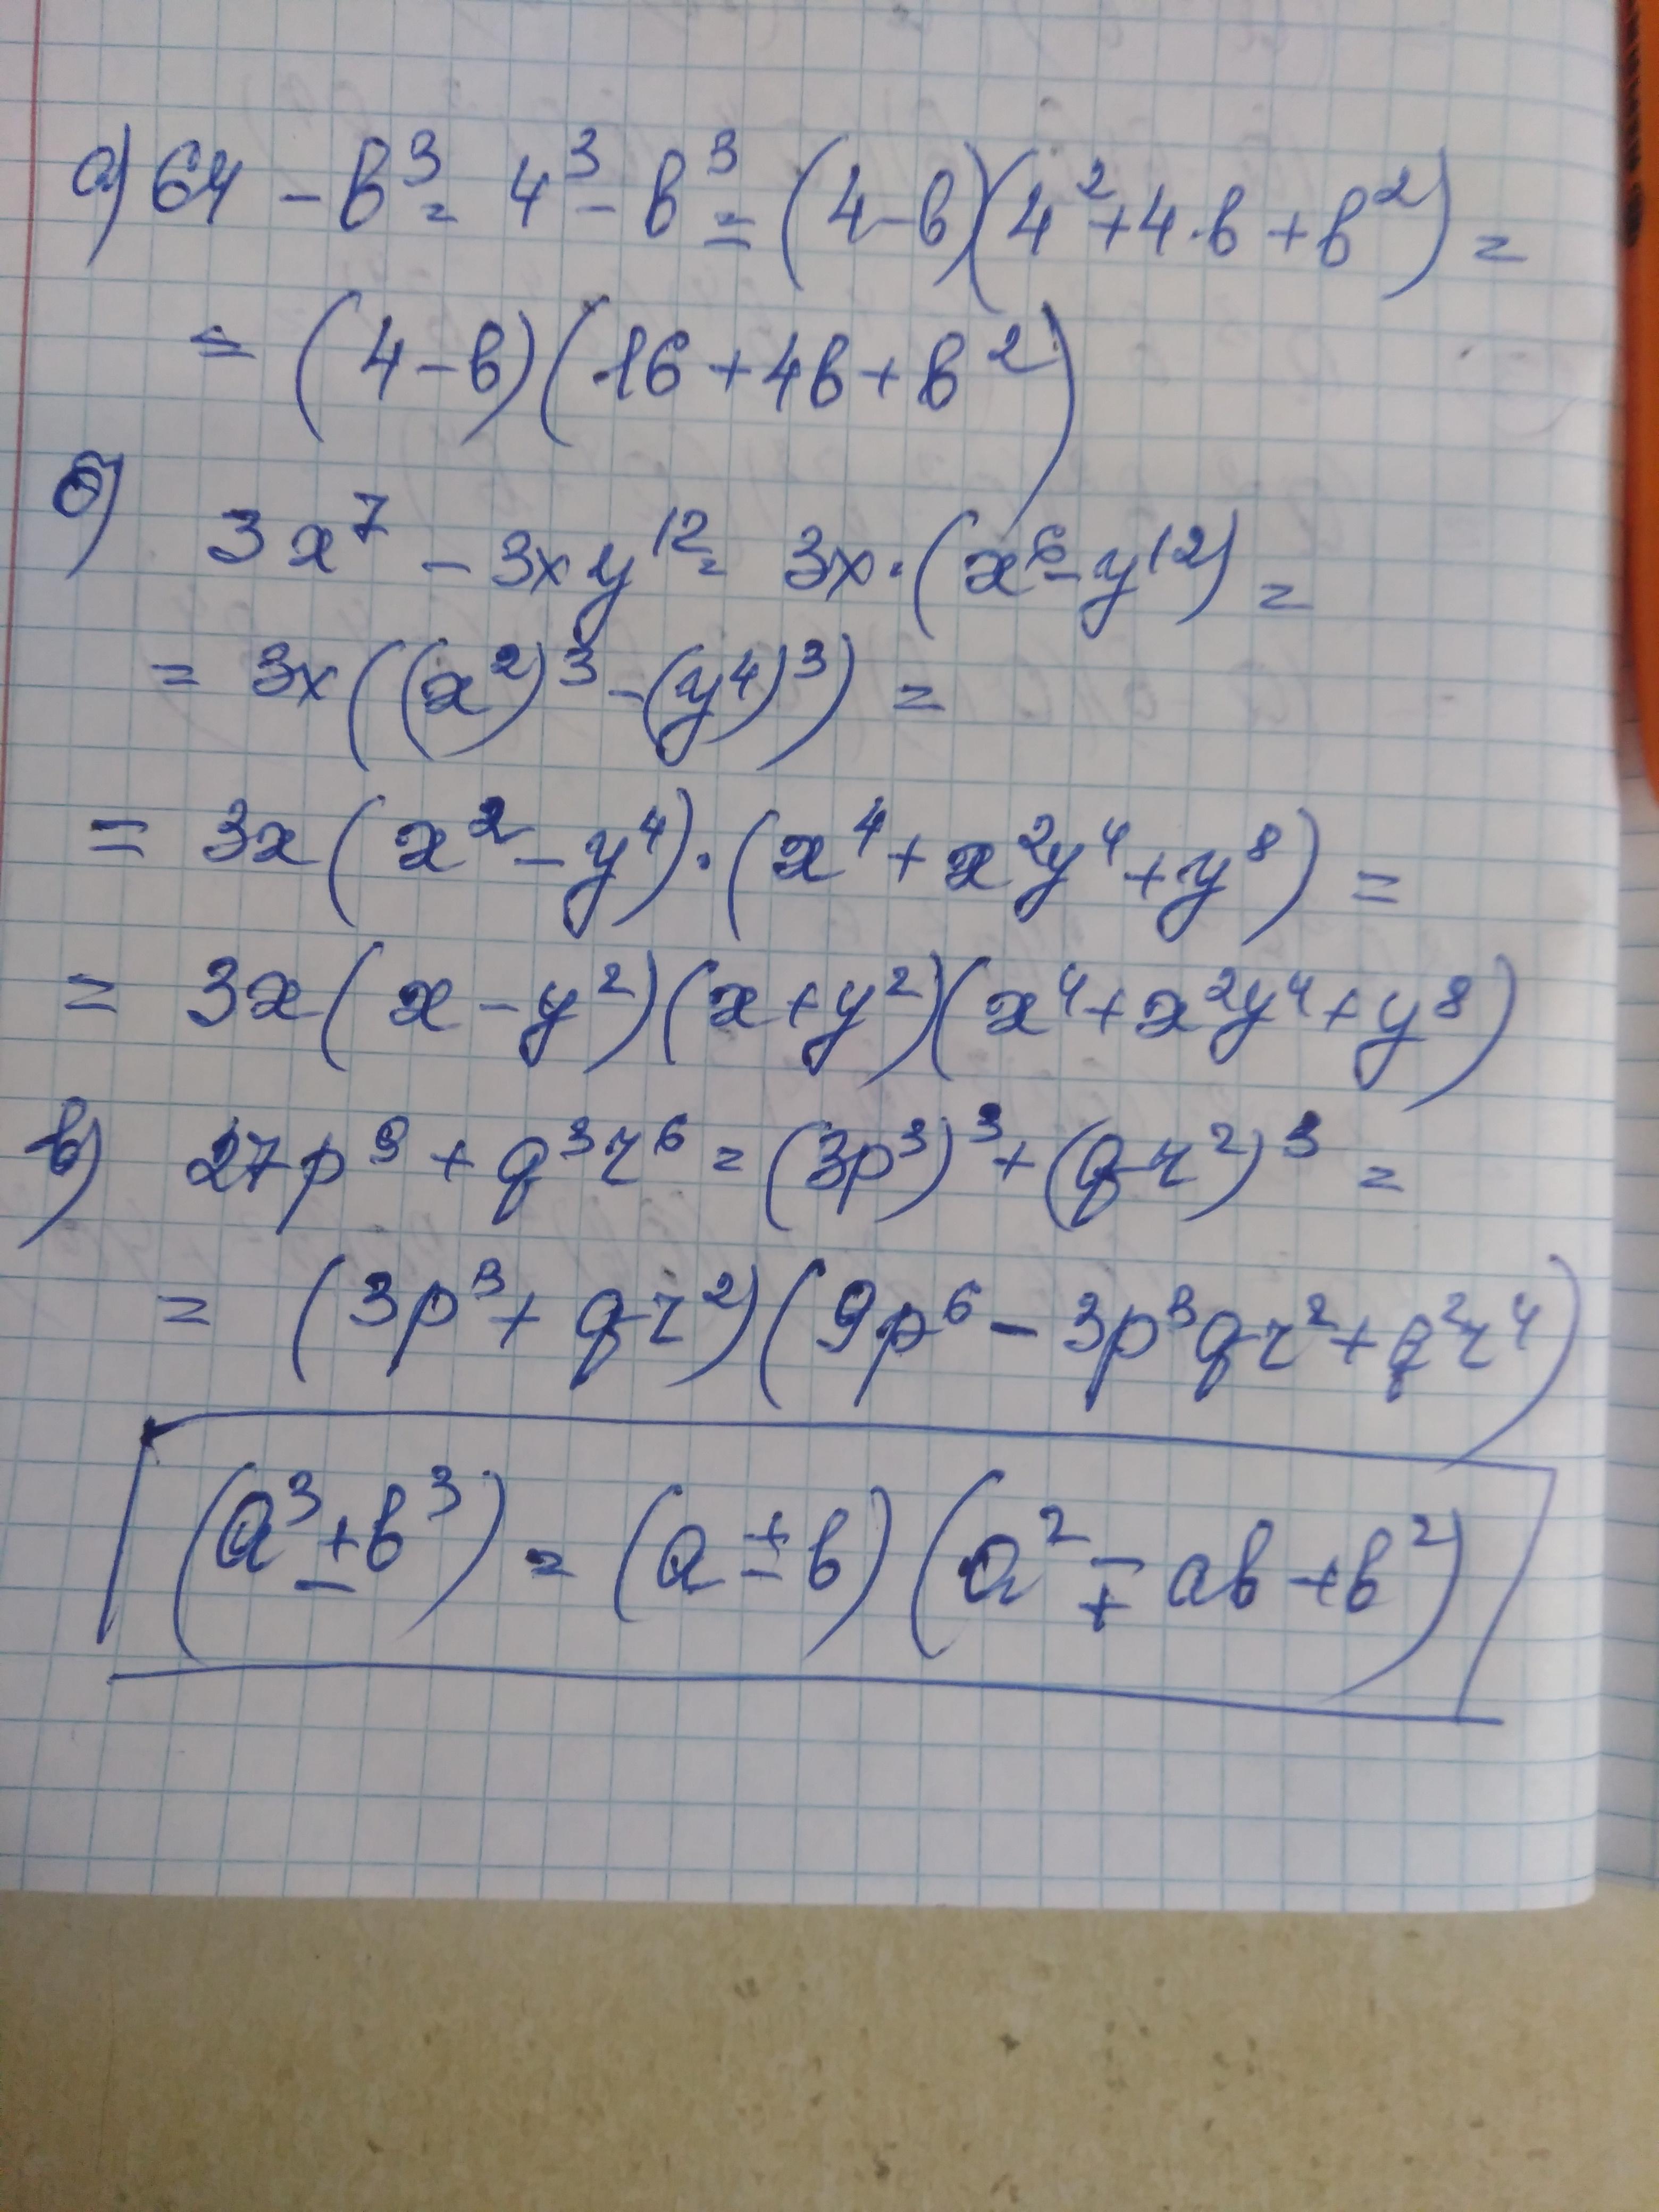 а) 64 - b³ = 4³ - b³ = (4-b)(4²+4·b+b²) =
= (4-b)(16+4b+b²)
б) 3x⁷ - 3xy¹² = 3x·(x⁶-y¹²) =
= 3x((x²)³-(y⁴)³) =
= 3x(x²-y⁴)·(x⁴+x²y⁴+y⁸) =
= 3x(x-y²)(x+y²)(x⁴+x²y⁴+y⁸)
в) 27p⁹+q³r⁶ = (3p³)³+(qr²)³ =
= (3p³+qr²)(9p⁶-3p³qr²+q²r⁴)
(a³±b³) = (a±b)(a²∓ab+b²)